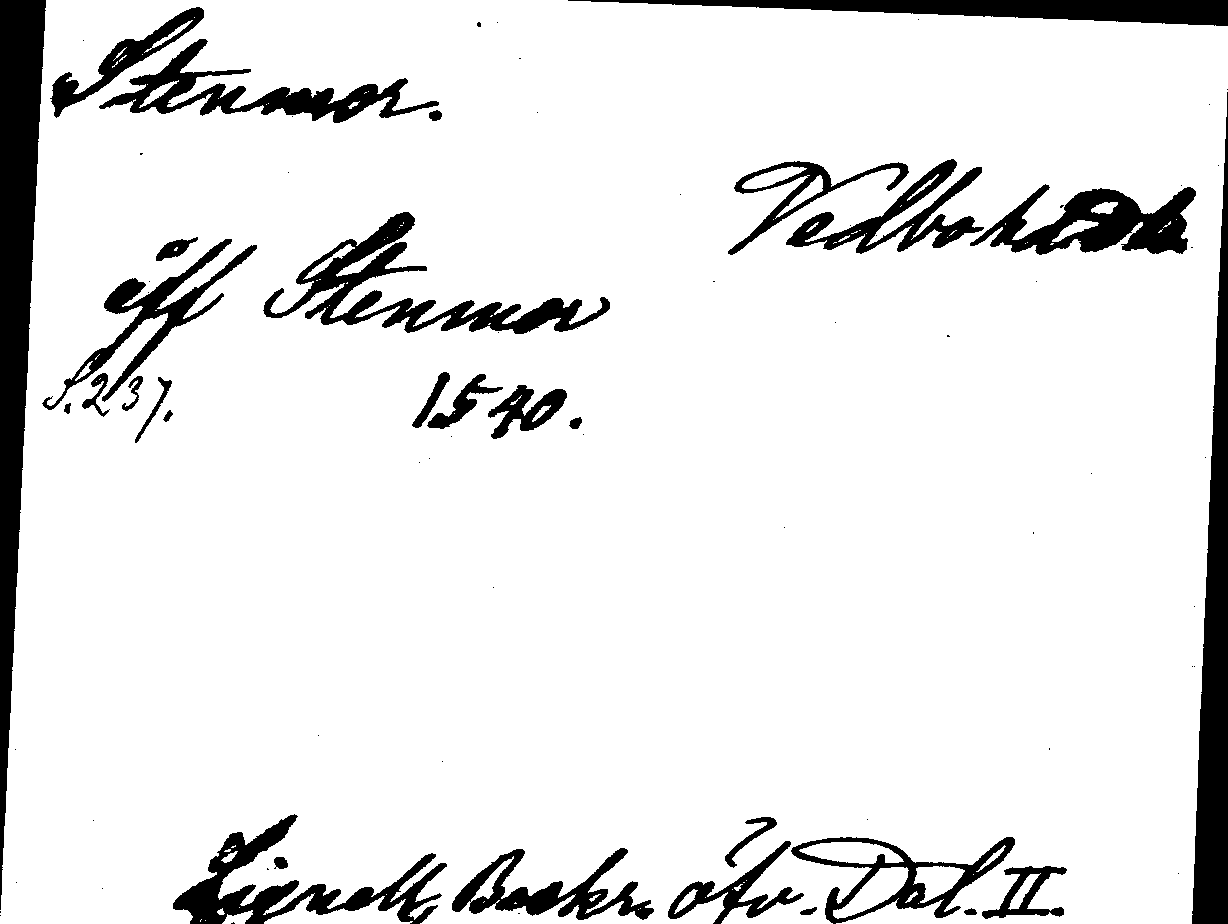 Stenmor.
Vedbo hd Dls
åff Stenmor
S. 237. 1540.
Lignell, Beskr. öfv. Dal. II.